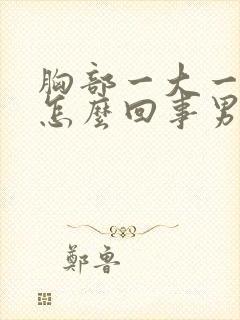 胸部一大一
怎麼回事男
鄭魯